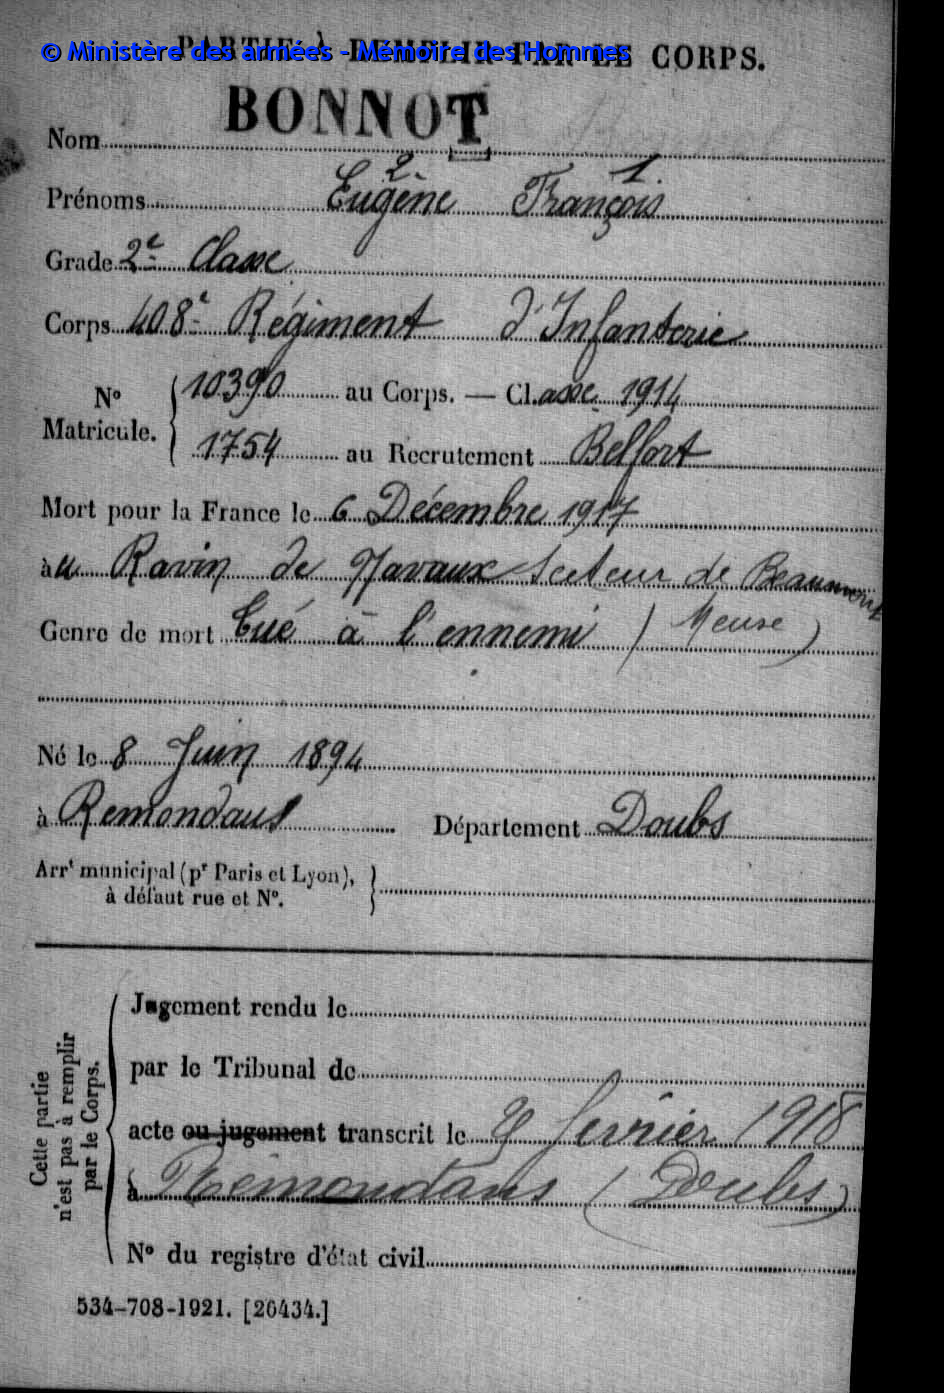 PARTIE À REMPLIR PAR LE CORPS.
© Ministère des armées - Mémoire des Hommes
BONNOT
Nom
2 1
Prénoms Eugène François
Grade 2e Classe
Corps 408e Régiment d'Infanterie
No Matricule. { 10390 au Corps. — Cl.asse 1914
1754 au Recrutement Belfort
Mort pour la France le 6 Décembre 1917
àu Ravin de Navaux Secteur de Beaumont
Genre de mort Tué à l'ennemi (Meuse)
Né le 8 Juin 1894
à Remondans Département Doubs
Arrt municipal (pr Paris et Lyon),
à défaut rue et No.
Cette partie
n'est pas à remplir
par le Corps.
Jugement rendu le
par le Tribunal de
acte ou jugement transcrit le février 1918
à Rémondans (Doubs)
No du registre d'état civil
534-708-1921. [26434.]